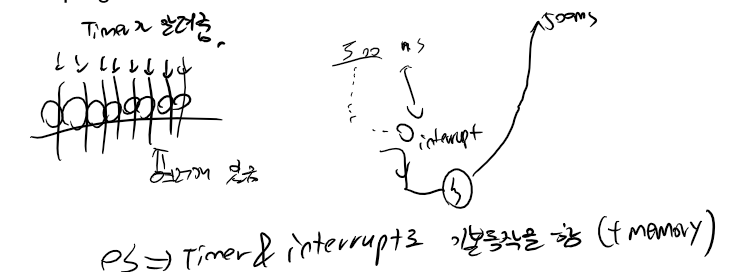 Timer가 알려줌.
500 ms
500ms
interrupt
있음
OS ⇒ Timer & interrupt로 기본동작을 함 (+ memory)